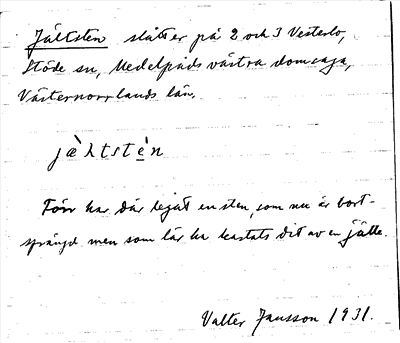 Jältsten slåtter på 2 och 3 Vesterlo,
Stöde sn, Medelpads västra domsaga,
Västernorrlands län.
jæ̀ltstè̱n
Förr har där legat en sten, som nu är bort-
sprängd men som lär ha kastats dit av en jätte.
Valter Jansson 1931.